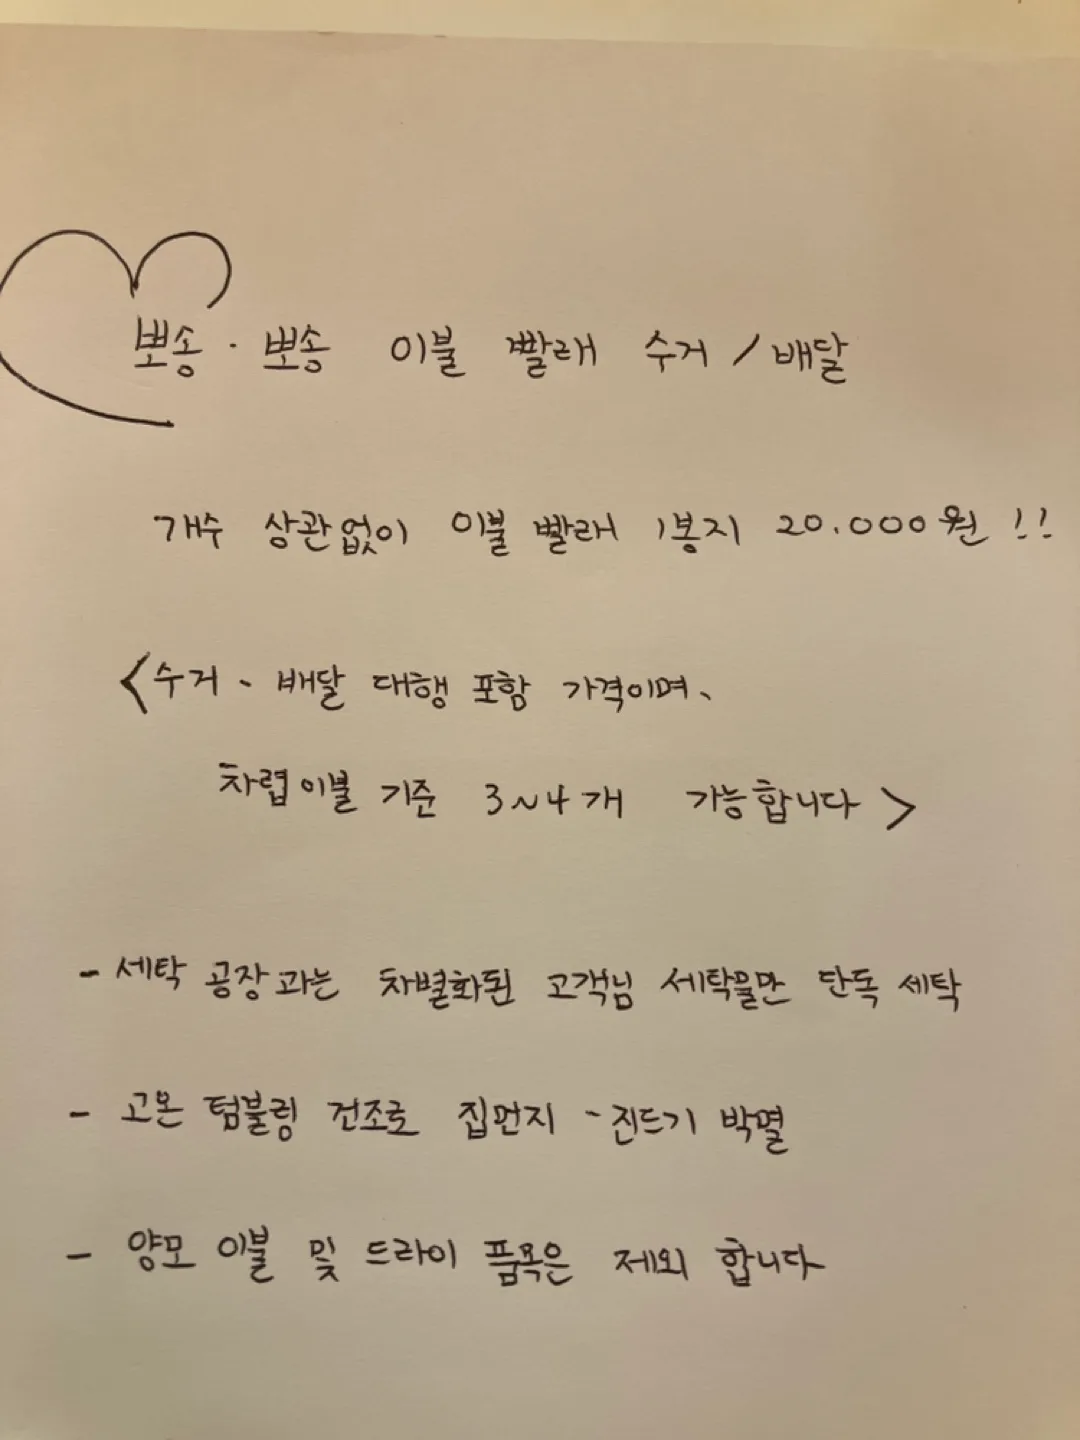 뽀송·뽀송 이불 빨래 수거 / 배달
개수 상관없이 이불 빨래 1봉지 20.000원!!
<수거、배달 대행 포함 가격이며、
차렵이불 기준 3~4개 가능합니다>
- 세탁 공장과는 차별화된 고객님 세탁물만 단독 세탁
- 고온 텀블링 건조로 집먼지-진드기 박멸
- 양모 이불 및 드라이 품목은 제외 합니다